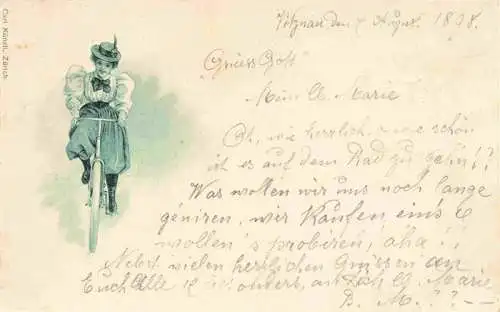 Carl Künzli, Zürich
Vitznau den 7 August 1898.
"Grüess Gott"
Mein lb. Marie
Oh, wie herrlich, wie schön
ist es auf dem Rad zu gehn!?
Was wollen wir uns noch lange
géniren, wir Kaufen eins &
wollen's probiren, aha!!
Nebst vielen herzlichen Grüssen an
Euch Alle & besonders, an Dich lb. Marie
B. M.??--